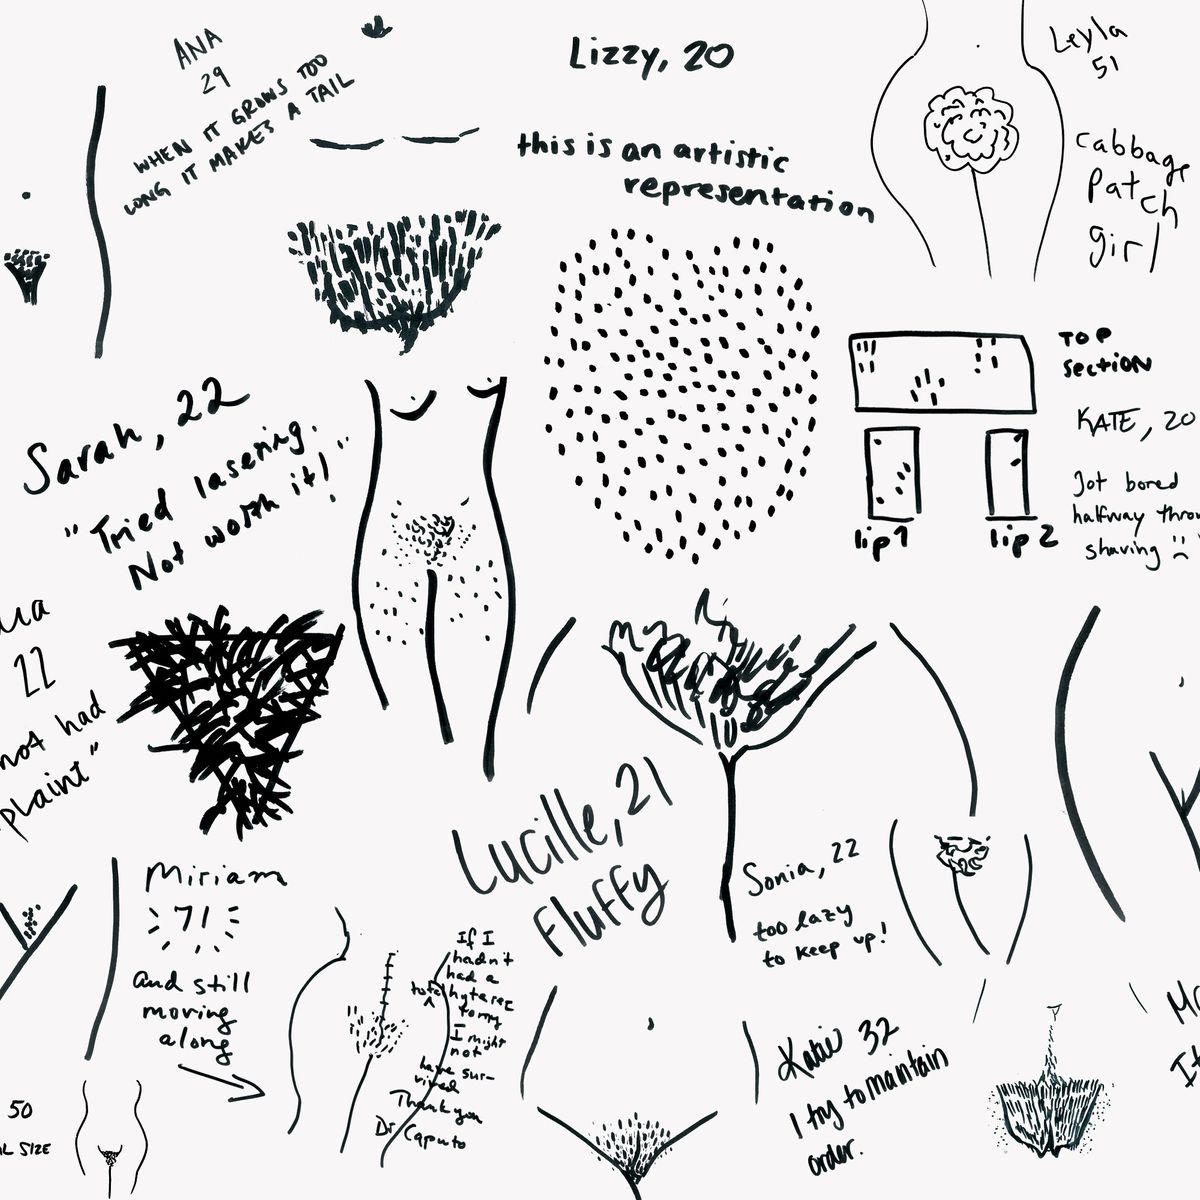 ANA
29
WHEN IT GROWS TOO
LONG IT MAKES A TAIL
Lizzy, 20
this is an artistic
representation
Leyla
51
cabbage
Patch
girl
TOP
section
KATE, 20
Got bored
halfway throu
shaving
lip 1
lip 2
Sarah, 22
"Tried lasering.
Not worth it!"
22
not had
plaint"
Lucille, 21
Fluffy
Sonia, 22
too lazy
to keep up!
Miriam
71
and still
moving
along
If I
hadn't
had a
total hyterec
tomy
I might
not
have sur-
vived
Thank you
Dr Caputo
Katie 32
I try to maintain
order.
50
AL SIZE